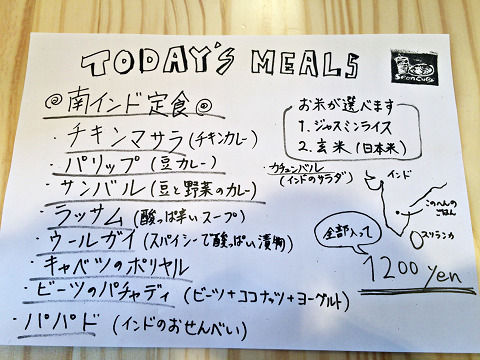 TODAY'S MEALS
SPOON CURRY
南インド定食
・チキンマサラ (チキンカレー)
・パリップ (豆カレー)
・サンバル (豆と野菜のカレー)
・ラッサム (酸っぱ辛いスープ)
・ウールガイ (スパイシーで酸っぱい漬物)
・キャベツのポリヤル
・ビーツのパチャディ (ビーツ+ココナッツ+ヨーグルト)
・パパド (インドのおせんべい)
お米が選べます
1. ジャスミンライス
2. 玄米 (日本米)
・カチュンバル
(インドのサラダ)
インド
このへんの
ごはん
スリランカ
全部入って
1200 yen